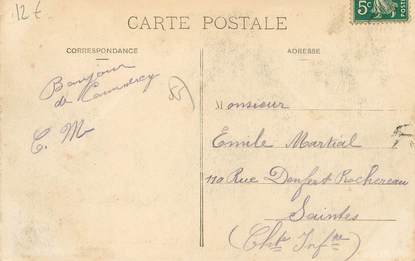 12 €
5c
POSTES
CARTE POSTALE
CORRESPONDANCE
ADRESSE
Bonjour
de Commercy
C. M
55
Monsieur
Emile Martial
110 Rue Denfert Rochereau
Saintes
(Chte Infre)